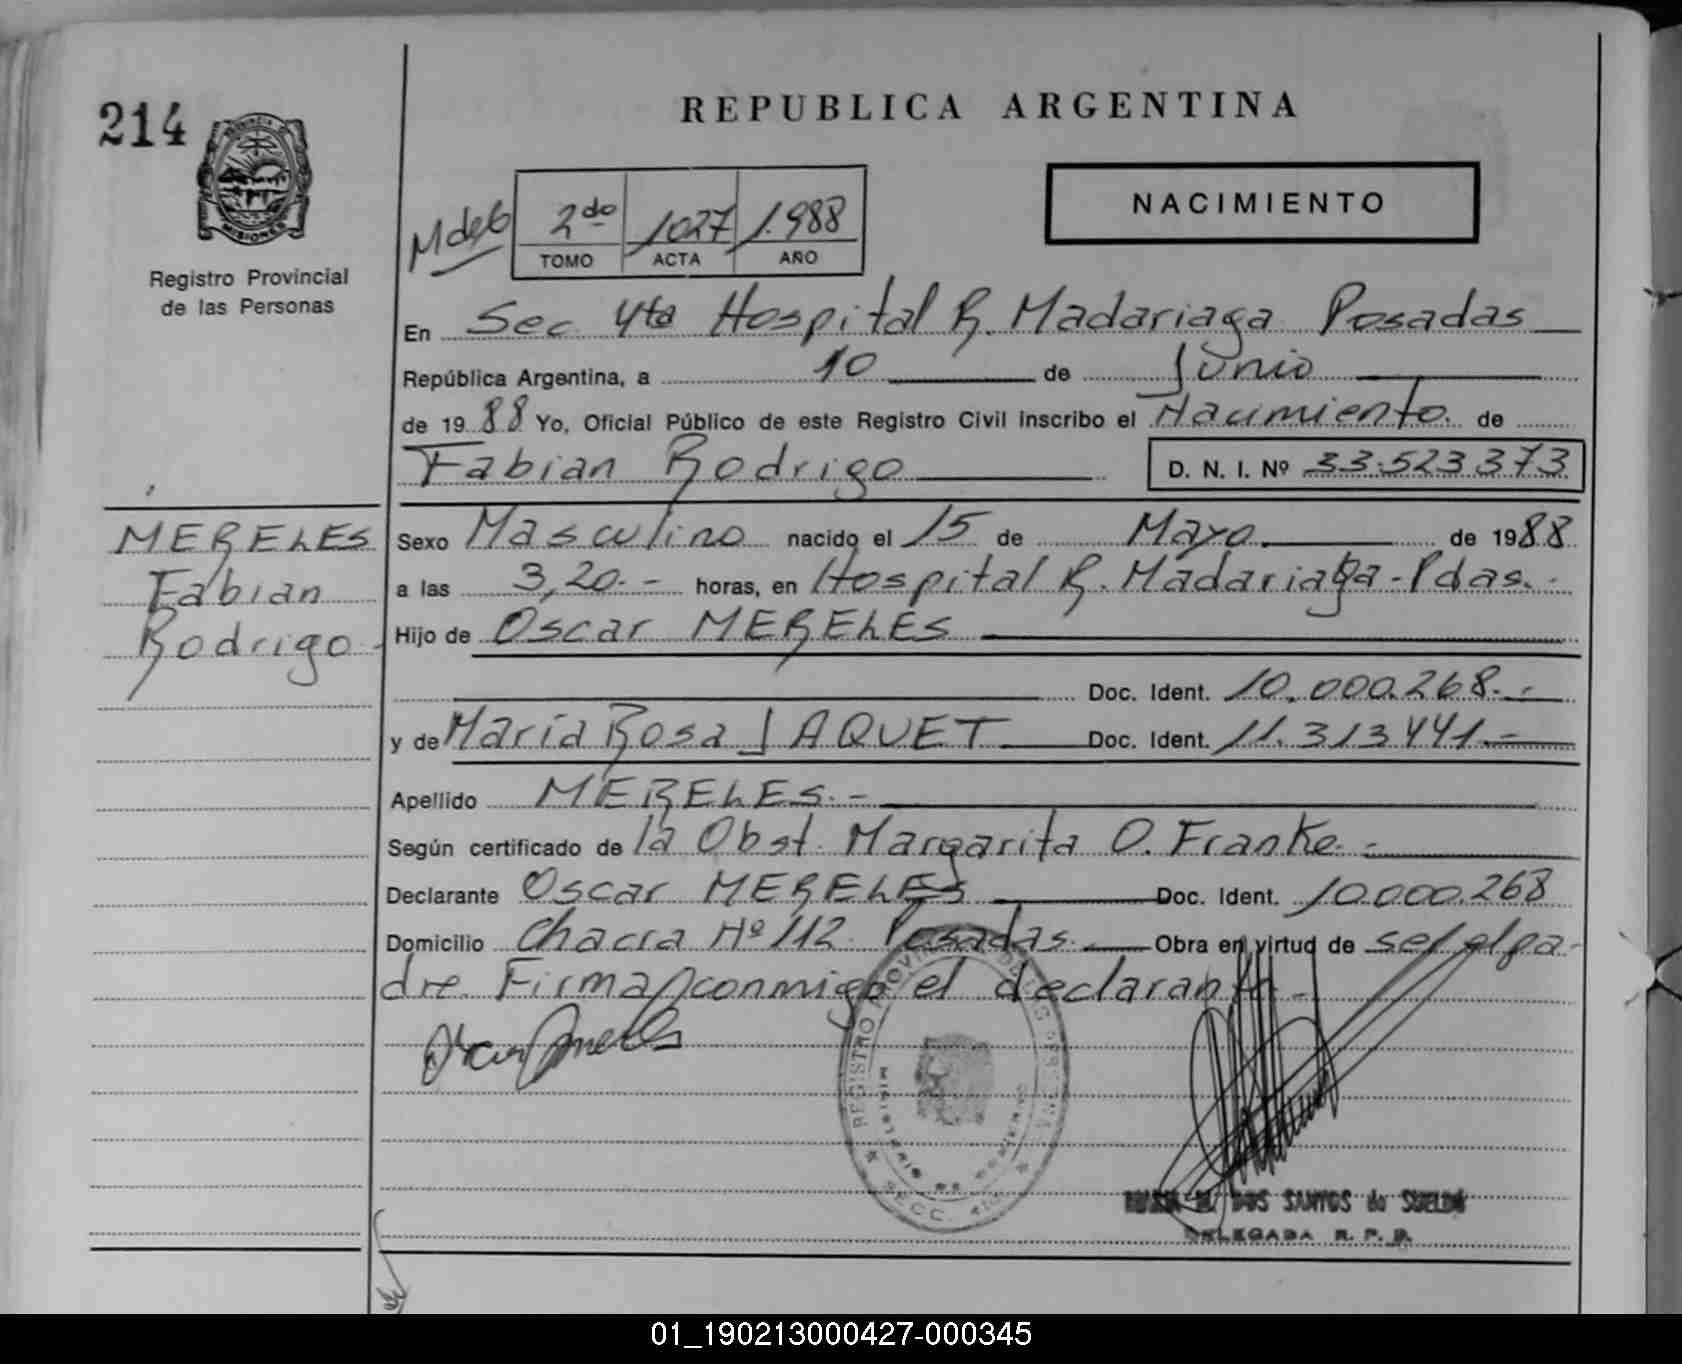 214
REPUBLICA ARGENTINA
PROVINCIA DE
MISIONES
Registro Provincial
de las Personas
NACIMIENTO
Mdeb 2do 1027 1.988
TOMO ACTA AÑO
En Sec 4ta Hospital R. Madariaga Posadas
República Argentina, a 10 de Junio
de 1988 Yo, Oficial Público de este Registro Civil inscribo el Nacimiento. de
Fabian Rodrigo D. N. I. Nº 33.523.373
MERELES
Fabian
Rodrigo
Sexo Masculino nacido el 15 de Mayo. de 1988
a las 3,20.- horas, en Hospital R. Madariaga-Pdas.-
Hijo de Oscar MERELES
Doc. Ident. 10.000.268.-
y de María Rosa JAQUET Doc. Ident. 11.313.441.-
Apellido MERELES.-
Según certificado de la Obst. Margarita O. Franke.-
Declarante Oscar MERELES Doc. Ident. 10.000.268
Domicilio Chacra Nº 112. Posadas. Obra en virtud de ser el pa-
dre. Firma conmigo el declarante.-
REGISTRO PROVINCIAL DE LAS PERSONAS
MINISTERIO DE GOBIERNO
SECC. 4ta
DOS SANTOS de SUELDO
DELEGADA R. P. P.
01_190213000427-000345